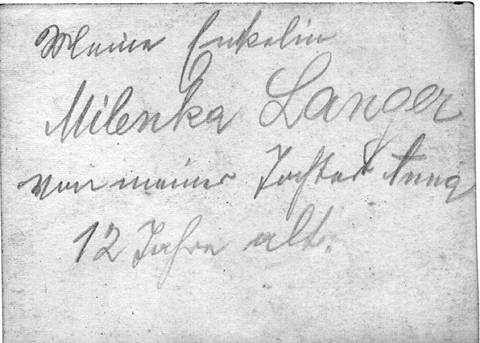 Meine Enkelin
Milenka Langer
von meiner Tochter Anna
12 Jahre alt.